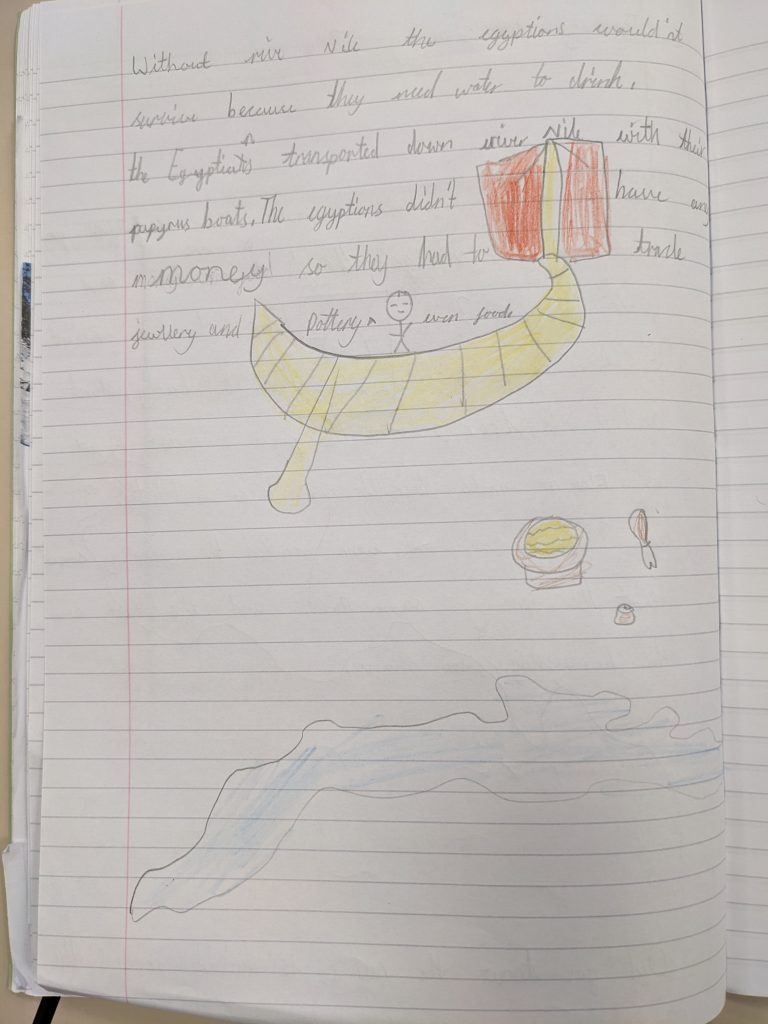 Without rivr Nile the egyptions would'nt
survive because they need water to drink.
the Egyptians transported down river Nile with their
papyrus boats. The egyptions didn't have any
money so they had to trade
jewllery and Pottery even foods